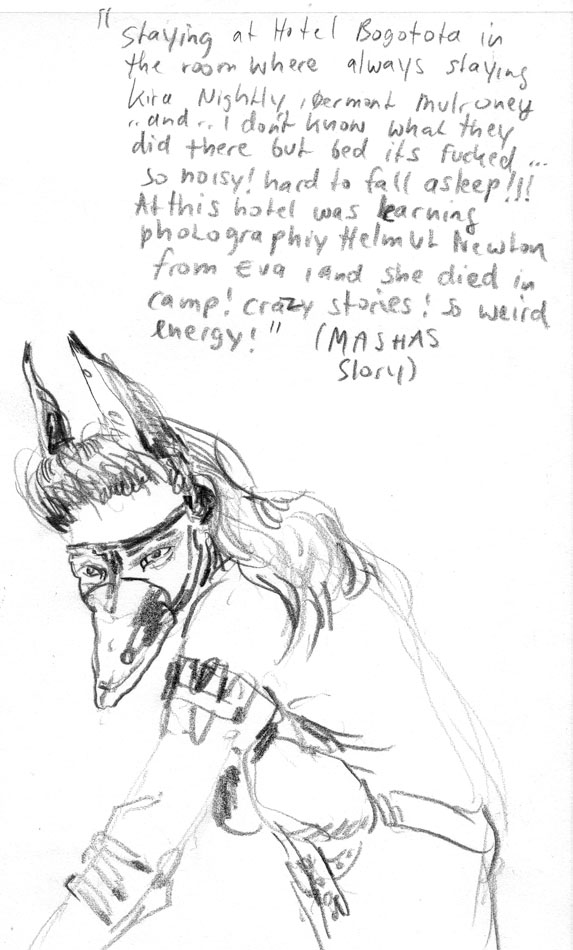 "Staying at Hotel Bogotota in
the room where always staying
Kira Nightly, Dermont Mulroney
..and.. I don't know what they
did there but bed its fucked...
so noisy! hard to fall asleep!!!
At this hotel was learning
photographiy Helmut Newton
from Eva , and she died in
camp! crazy stories! so weird
energy!" (MASHAS
Story)